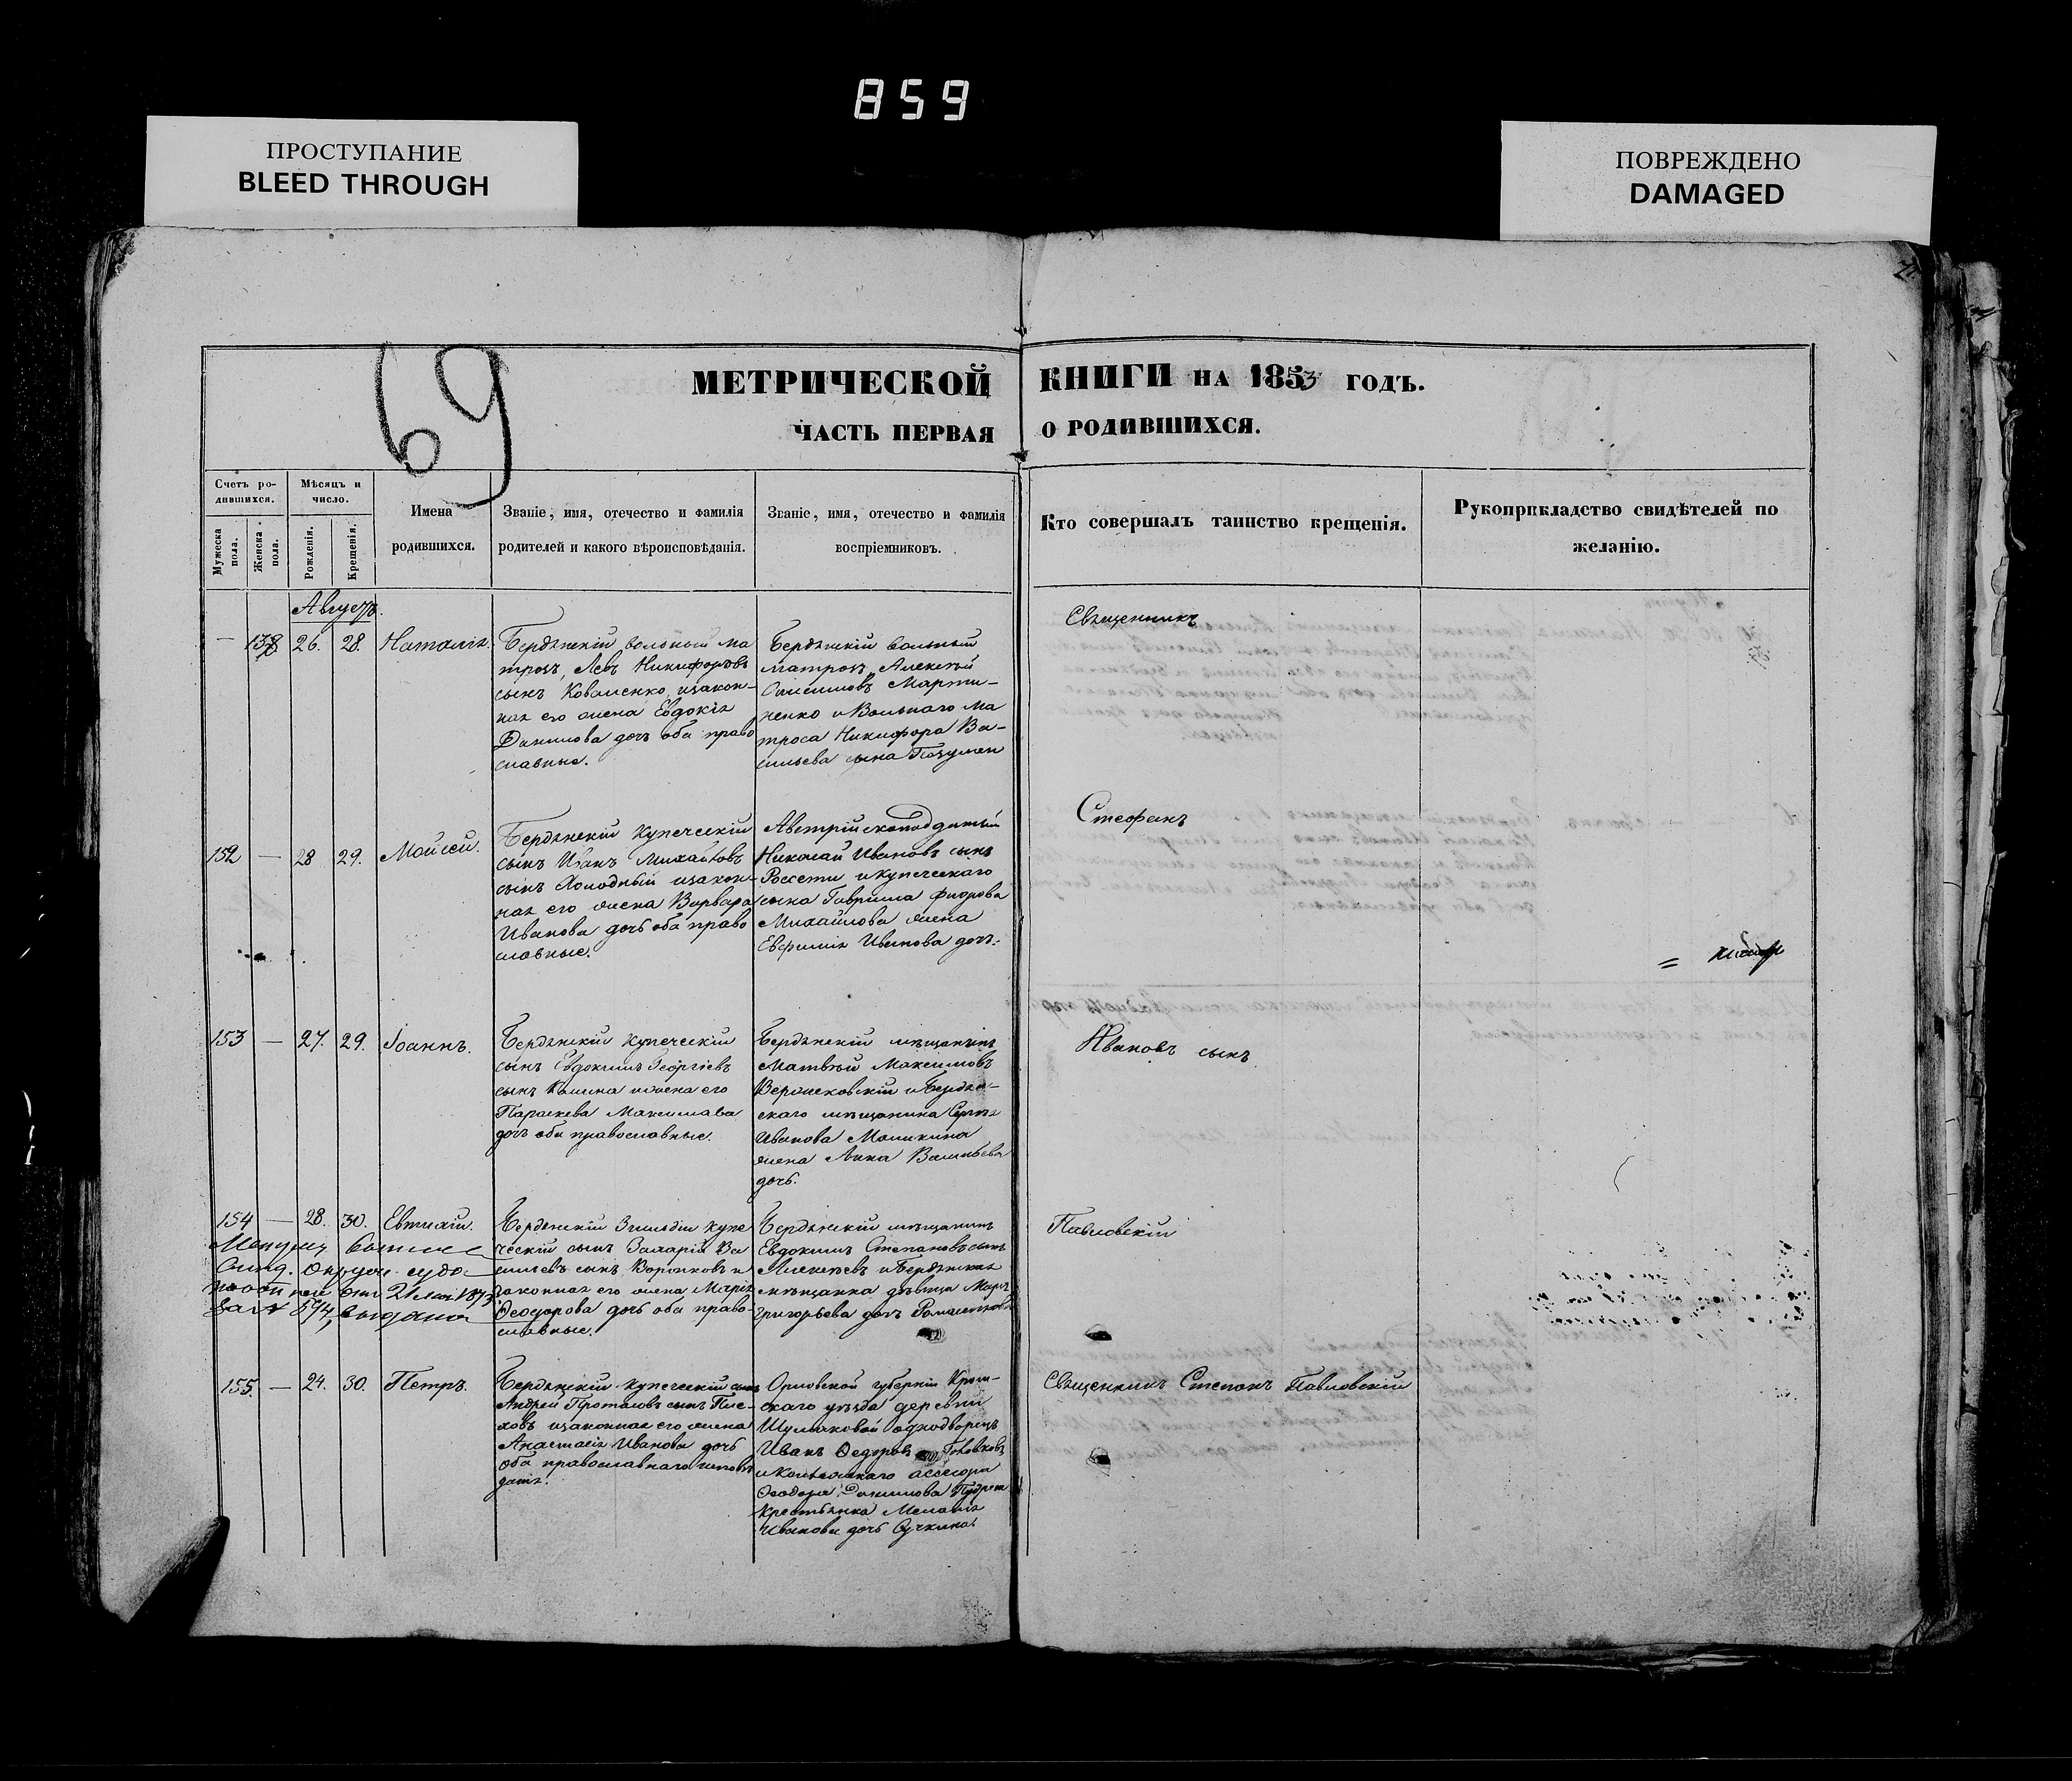 859
ПРОСТУПАНИЕ
BLEED THROUGH
ПОВРЕЖДЕНО
DAMAGED
69
МЕТРИЧЕСКОЙ КНИГИ НА 1853 ГОДЪ.
ЧАСТЬ ПЕРВАЯ О РОДИВШИХСЯ.
Счетъ ро-
дившихся.
Мужеска пола.
Женска пола.
Мѣсяцъ и
число.
Рожденія.
Крещенія.
Имена
родившихся.
Званіе, имя, отечество и фамилія
родителей и какого вѣроисповѣданія.
Званіе, имя, отечество и фамилія
воспріемниковъ.
Кто совершалъ таинство крещенія.
Рукоприкладство свидѣтелей по
желанію.
Августъ.
— 138 26. 28. Наталія.
Бердянскій вольный ма
трозъ, Левъ Никифоровъ
сынъ Коваленко, изакон-
ная его жена Евдокія
Данилова дочь оба право
славные.
Бердянскій вольный
матрозъ Алексѣй
Онисимовъ Марти-
ненко и Вольнаго Ма
троса Никифора Ва-
сильева сына
Священникъ
152 — 28 29. Мойсей.
Бердянскій Купеческій
сынъ Иванъ Михайловъ
сынъ Холодный изакон-
ная его жена Варвара
Иванова дочь оба право
славные.
Австрійскоподданый
Николай Ивановъ сынъ
Россети и купеческаго
сына Гаврила Фиорова
Михайлова жена
Евфимія Иванова дочь.
Стефанъ
153 — 27. 29. Іоаннъ.
Бердянскій купеческій
сынъ Евдокимъ Георгіевъ
сынъ Калина ижена его
Параскева Максимова
дочь оба православные.
Бердянскій мѣщанинъ
Матвѣй Максимовъ
и Бердян-
скаго мѣщанина Сергѣя
Иванова Маликина
жена Анна Васильева
дочь.
Ивановъ сынъ
154 — 28. 30. Евтихій.
574, выдана
Бердянскій 3 гильдіи купе
ческій сынъ Захарій Ва
сильевъ сынъ Воронковъ и
законная его жена Марія
Ѳеодорова дочь оба право-
славные.
Бердянскій мѣщанинъ
Евдокимъ Степановъ сынъ
Алексѣевъ и Бердянская
мѣщанка дѣвица Марія
Григорьева дочь
Павловскій
155. — 24. 30. Петръ.
Бердянскій купеческій сынъ
Андрей Протасовъ сынъ Пес-
ковъ изаконная его жена
Анастасія Иванова дочь
оба православнаго исповѣ
данія.
Орловской губерніи Кром-
скаго уѣзда деревни
Шумаковой однодворецъ
Иванъ Ѳедоровъ
и Колежскаго ассесора
Ѳеодора Данилова
крестьянка Меланія
Иванова дочь Сучкина.
Священникъ Стефанъ Павловскій